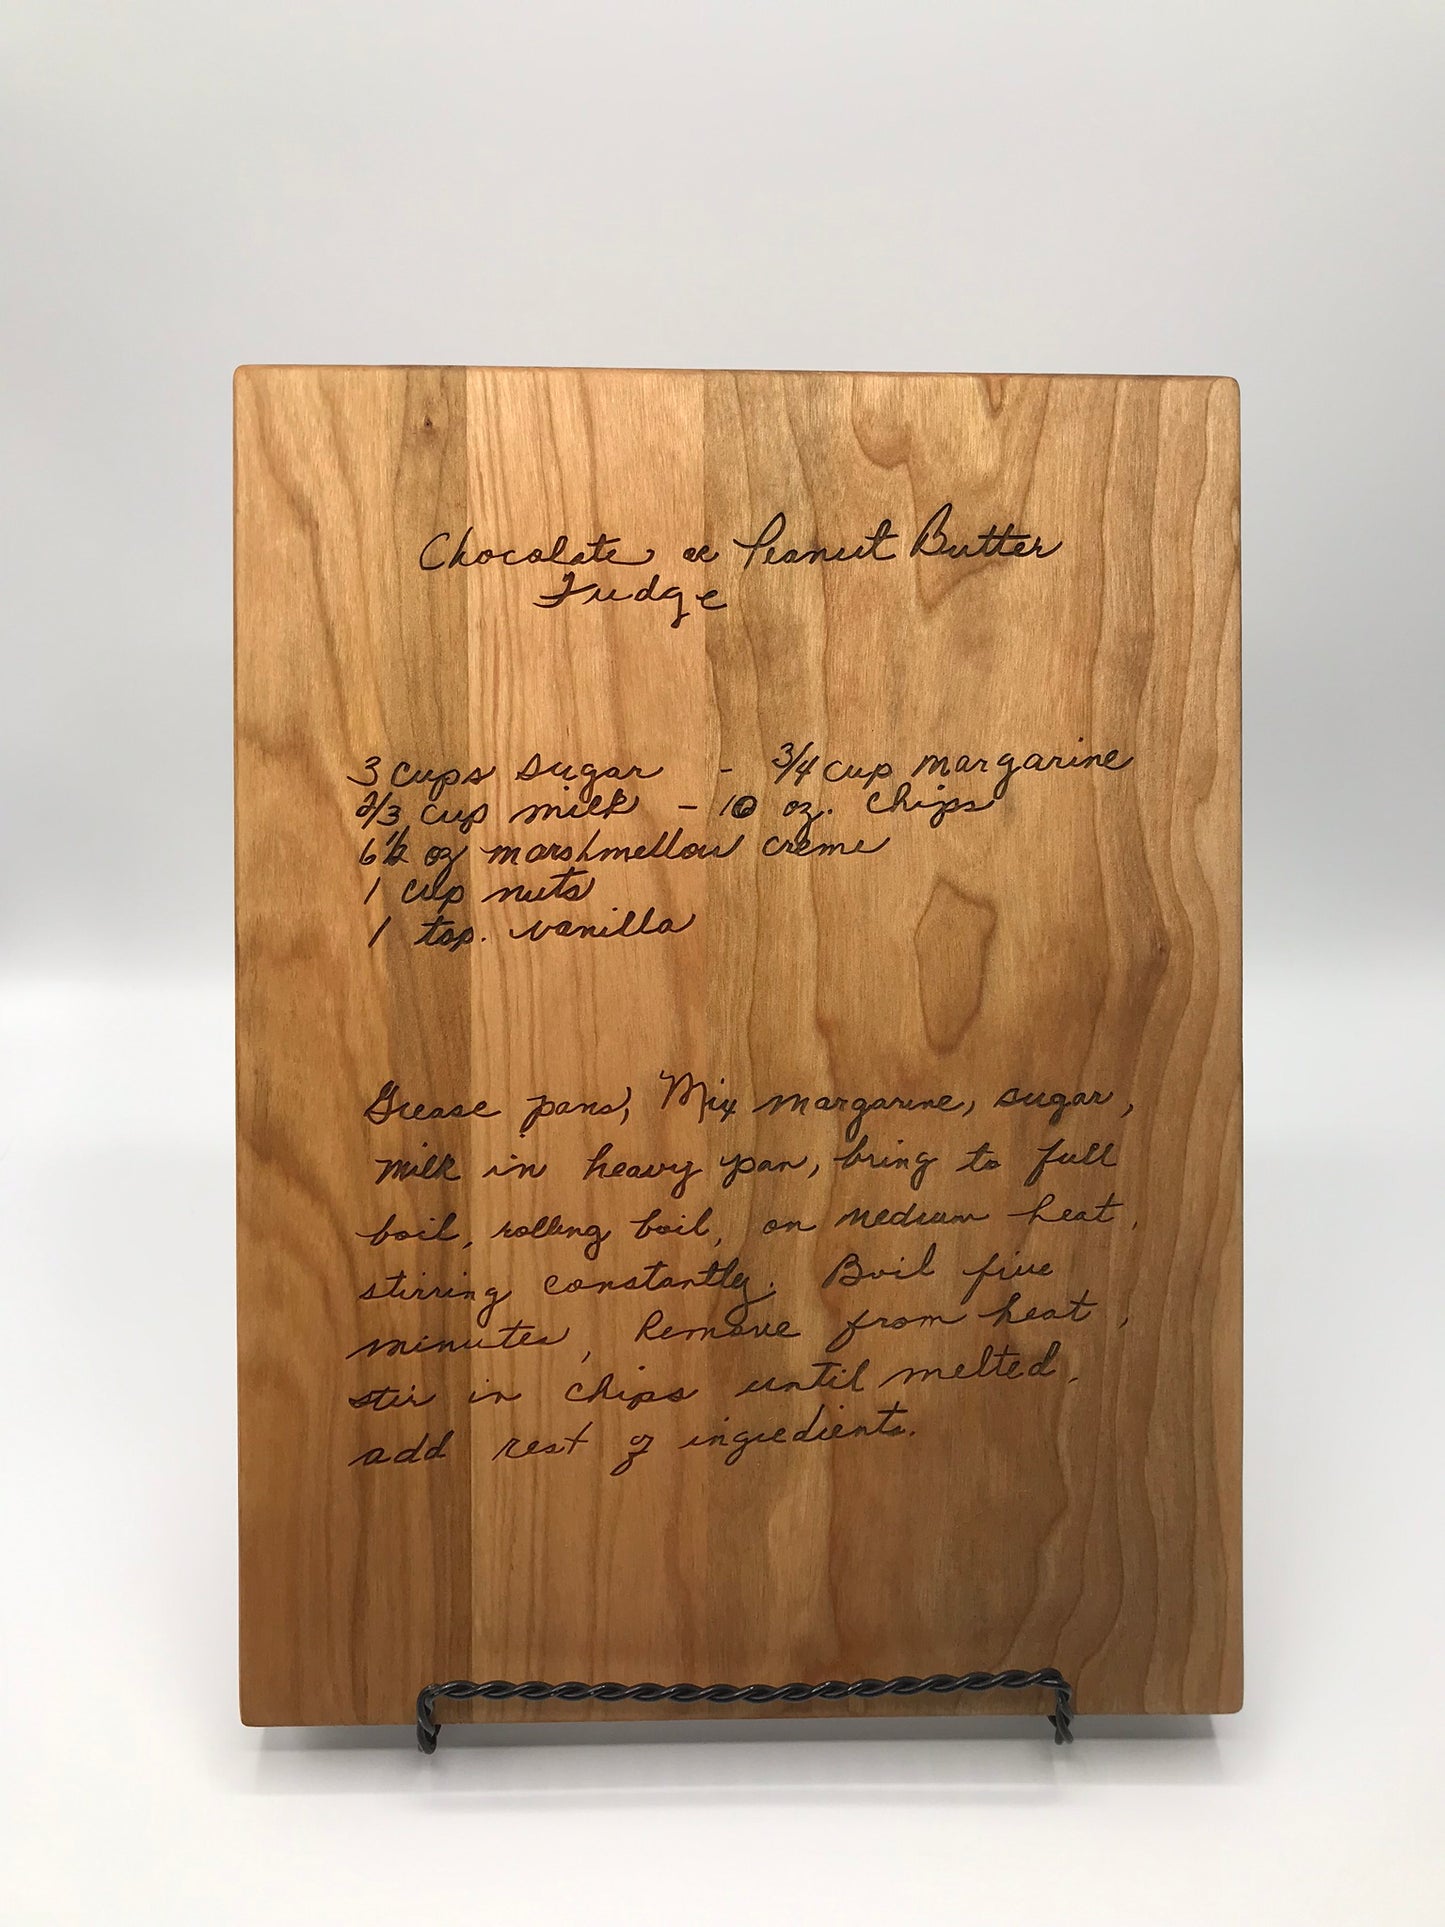 Chocolate or Peanut Butter
Fudge
3 cups sugar - 3/4 cup margarine
2/3 cup milk - 10 oz. chips
6 1/2 oz marshmellow creme
1 cup nuts
1 tsp. vanilla
Grease pans, Mix margarine, sugar,
milk in heavy pan, bring to full
boil, rolling boil, on medium heat,
stirring constantly. Boil five
minutes, Remove from heat,
stir in chips until melted,
add rest of ingredients.